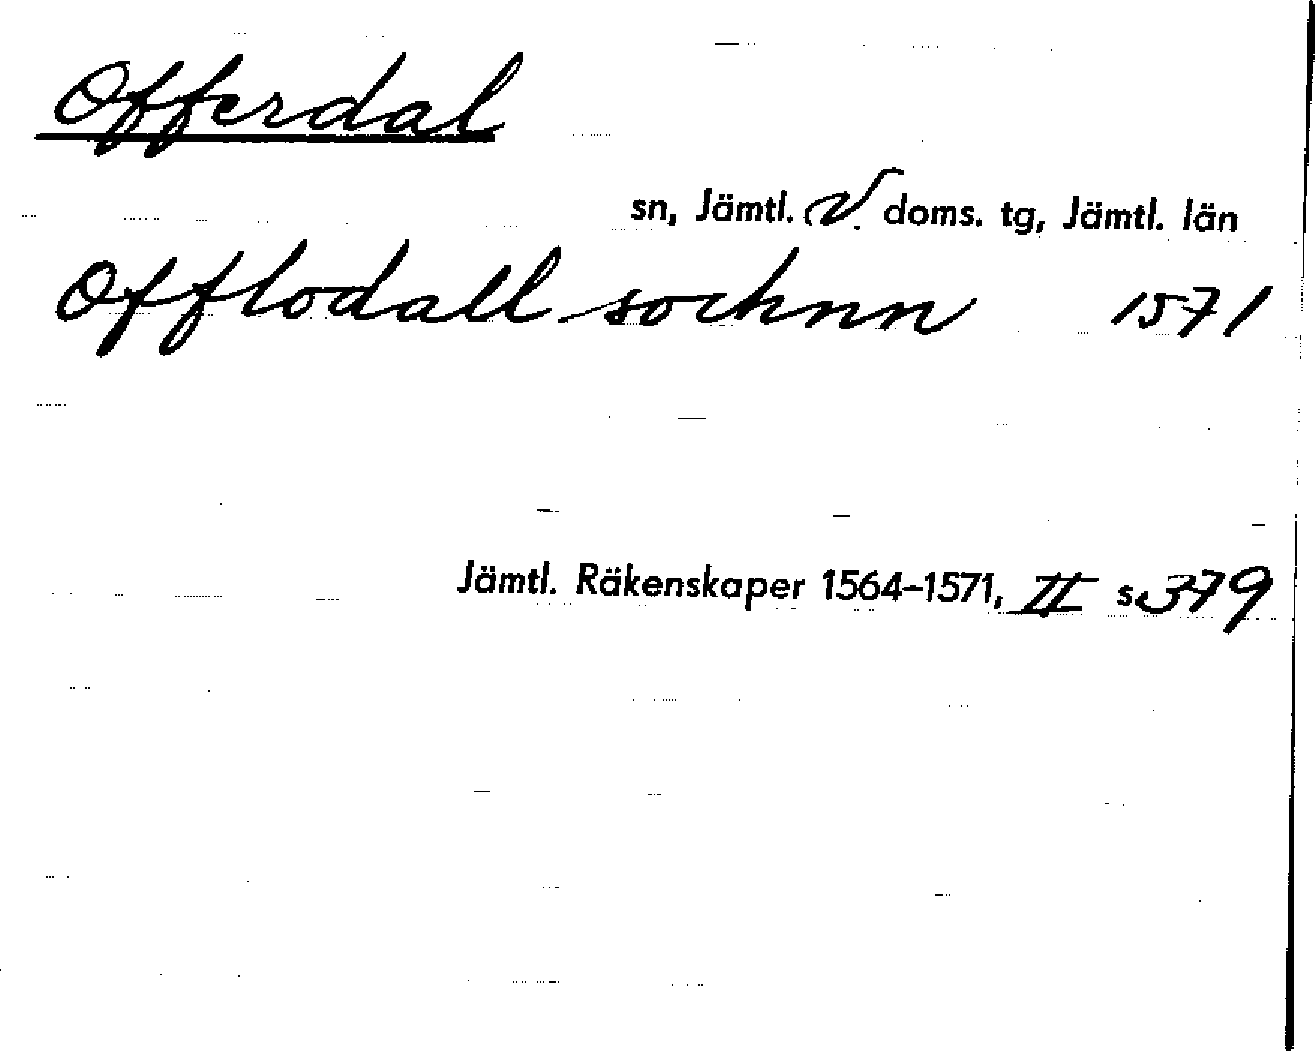 Offerdal
sn, Jämtl. V. doms. tg, Jämtl. län
Offlodall sochnn 1571
Jämtl. Räkenskaper 1564–1571, II s. 379